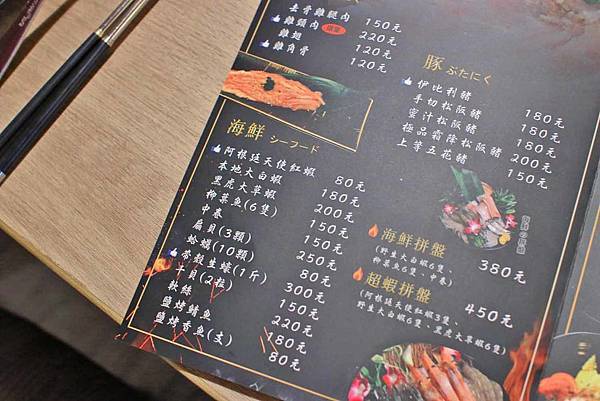 去骨雞腿肉 150元
雞頸肉 220元
雞翅 120元
雞角骨 120元
海鮮 シーフード
阿根廷天使紅蝦 80元
本地大白蝦 180元
黑虎大草蝦 200元
柳葉魚(6隻) 150元
中卷 150元
扇貝(3顆) 250元
蛤蠣(10顆) 80元
帶殼生蠔(1斤) 300元
干貝(2粒) 150元
軟絲 220元
鹽烤鯖魚 180元
鹽烤香魚(支) 80元
豚 ぶたにく
伊比利豬 180元
手切松阪豬 180元
蜜汁松阪豬 180元
極品霜降松阪豬 200元
上等五花豬 150元
海鮮拼盤 380元
(野生大白蝦6隻、
柳葉魚6隻、中卷)
超蝦拼盤 450元
(阿根廷天使紅蝦3隻、
野生大白蝦6隻、黑虎大草蝦6隻)